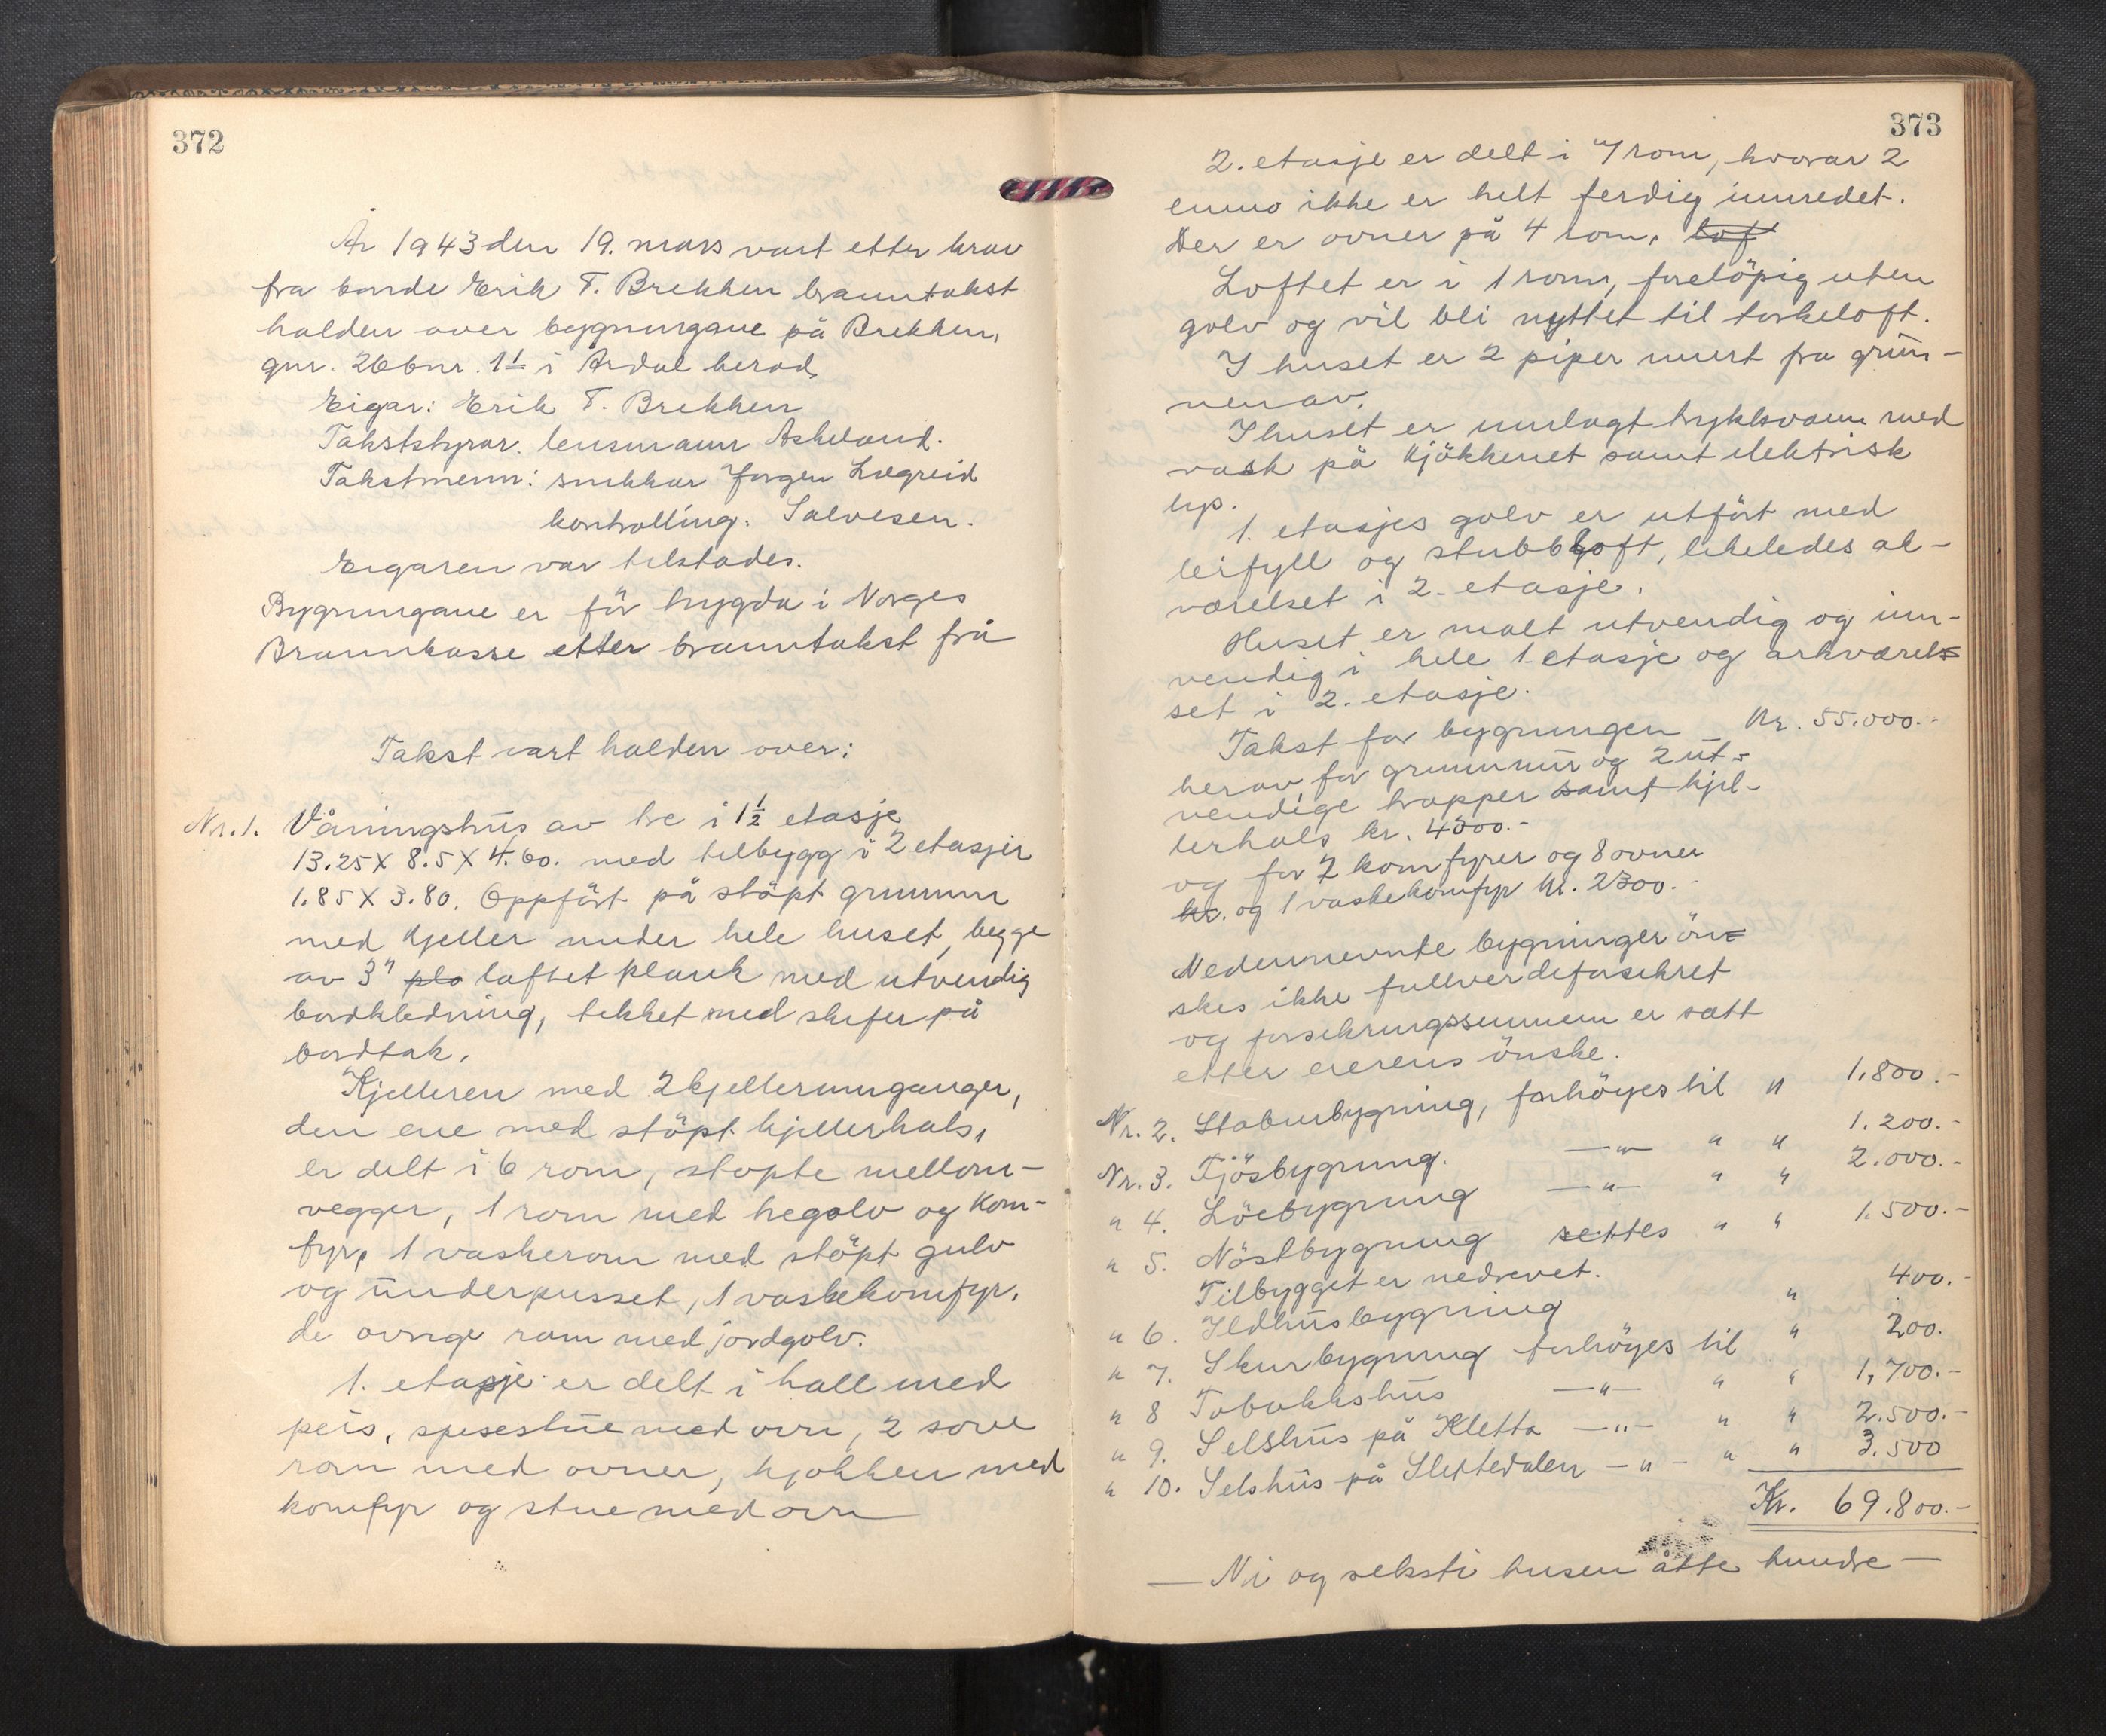 372
År 1943 den 19. mars vart etter krav
fra bonde Erik T. Brekken branntakst
halden over bygningane på Brekken,
gnr. 26 bnr. 11 i Årdal herad.
Eigar: Erik T. Brekken
Takststyrar: lensmann Askeland.
Takstmenn: snikkar Jørgen Lægreid
kontrolling. Salvesen.
Eigaren var tilstades.
Bygningane er før trygda i Norges
Brannkasse etter branntakst frå
Takst vart halden over:
Nr. 1. Våningshus av tre i 1½ etasje
13.25 X 8.5 X 4.60. med tilbygg i 2 etasjer
1.85 X 3.80. Oppført på støpt grunnmur
med kjeller under hele huset, begge
av 3" pla laftet plank med utvendig
bordkledning, tekket med skifer på
bordtak.
Kjelleren med 2 kjellerinnganger,
den ene med støpt kjellerhals,
er delt i 6 rom, støpte mellom-
vegger, 1 rom med tregolv og kom-
fyr, 1 vaskerom med støpt gulv
og underpusset, 1 vaskekomfyr,
de øvrige rom med jordgolv.
1. etasje er delt i hall med
peis, spisestue med ovn, 2 sove
rom med ovner, kjøkken med
komfyr og stue med ovn
373
2. etasje er delt i 7 rom, hvorav 2
ennå ikke er helt ferdig innredet.
Der er ovner på 4 rom. lof
Loftet er i 1 rom, foreløpig uten
golv og vil bli nyttet til tørkeloft.
I huset er 2 piper murt fra grun-
nen av.
I huset er innlagt trykkvann med
vask på kjøkkenet samt elektrisk
lys.
1. etasjes golv er utført med
leirfyll og stubbloft, likeledes ak-
værelset i 2. etasje.
Huset er malt utvendig og inn-
vendig i hele 1. etasje og arkværel-
set i 2. etasje.
Takst for bygningen Kr. 55.000.-
herav for grunnmur og 2 ut-
vendige trapper samt kjel-
lerhals kr. 4000.-
og for 2 komfyrer og 8 ovner
kr. og 1 vaskekomfyr kr. 2300.-
Nedennevnte bygninger øn-
skes ikke fullverdiforsikret
og forsikringssummen er satt
etter eierens ønske.
Nr. 2. Stabursbygning, forhøyes til " 1.800.-
Nr. 3. Fjøsbygning. —"— " " 1.200.-
" 4. Løebygning —"— " " 2.000.-
" 5. Nøstbygning settes " " 1.500.-
Tilbygget er nedrevet.
" 6. Ildhusbygning " 400.-
" 7. Skurbygning forhøyes til " 200.
" 8 Tobakkshus —"— " " 1,700.-
" 9. Selshus på Kletta —"— " " 2.500.-
" 10. Selshus på Slettedalen —"— " " 3.500
Kr. 69.800.-
— Ni og seksti tusen åtte hundre —